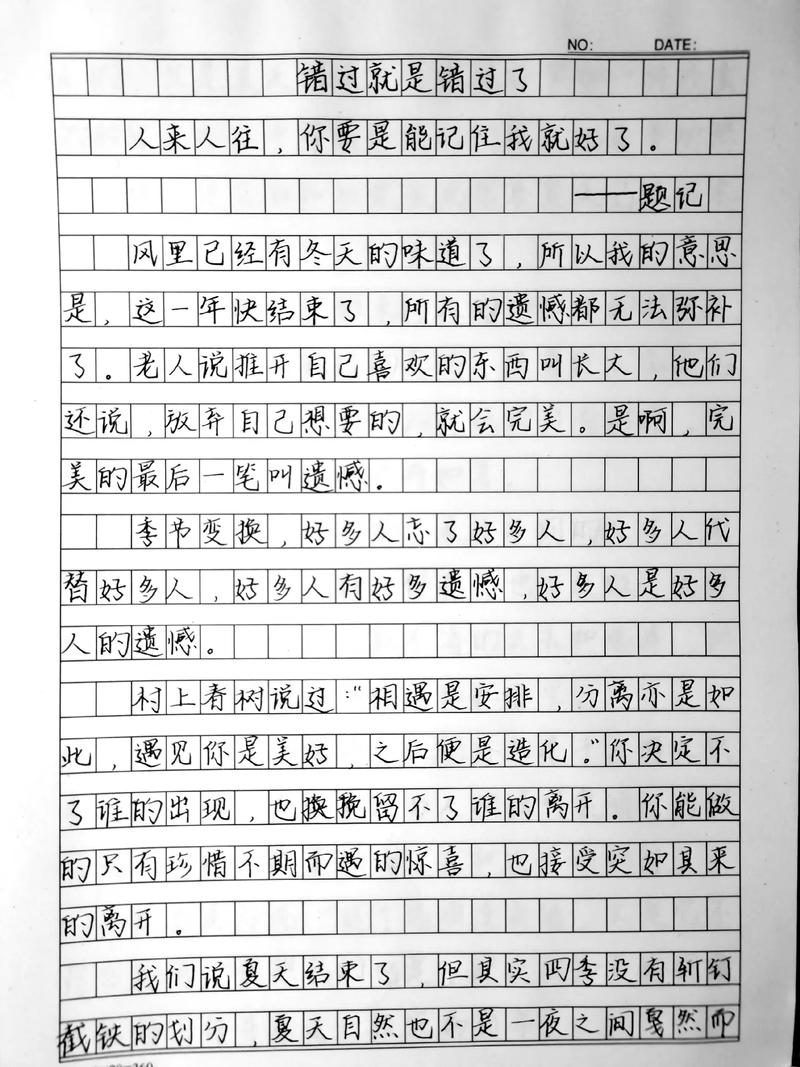 NO: DATE:
错过就是错过了
人来人往，你要是能记住我就好了。
——题记
风里已经有冬天的味道了，所以我的意思
是，这一年快结束了，所有的遗憾都无法弥补
了。老人说推开自己喜欢的东西叫长大，他们
还说，放弃自己想要的，就会完美。是啊，完
美的最后一笔叫遗憾。
季节变换，好多人忘了好多人，好多人代
替好多人，好多人有好多遗憾，好多人是好多
人的遗憾。
村上春树说过："相遇是安排，分离亦是如
此，遇见你是美好，之后便是造化。"你决定不
了谁的出现，也换挽留不了谁的离开。你能做
的只有珍惜不期而遇的惊喜，也接受突如其来
的离开。
我们说夏天结束了，但其实四季没有斩钉
截铁的划分，夏天自然也不是一夜之间戛然而